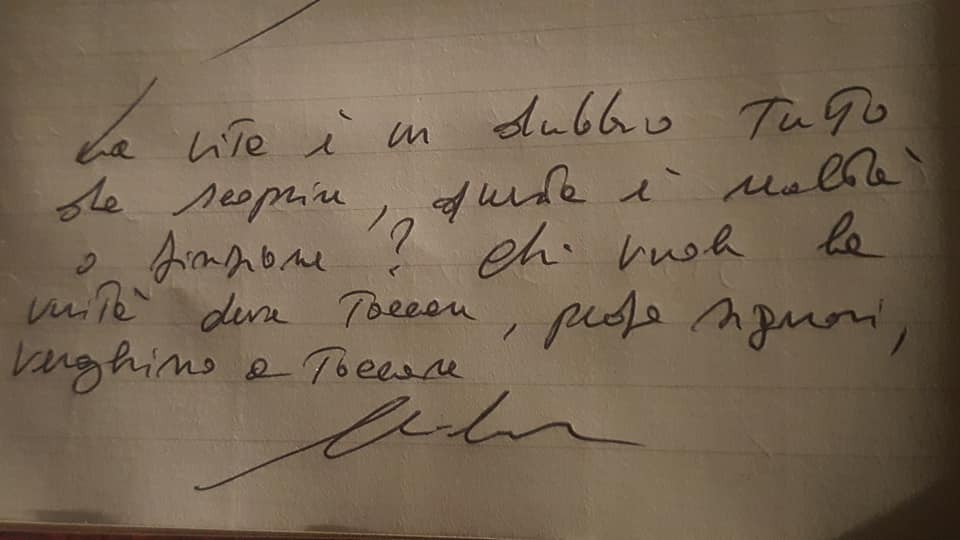 La vita è un dubbio tutto
da scoprire, questa è realtà
o finzione? Chi vuole la
verità deve toccare, prego signori,
venghino a toccare